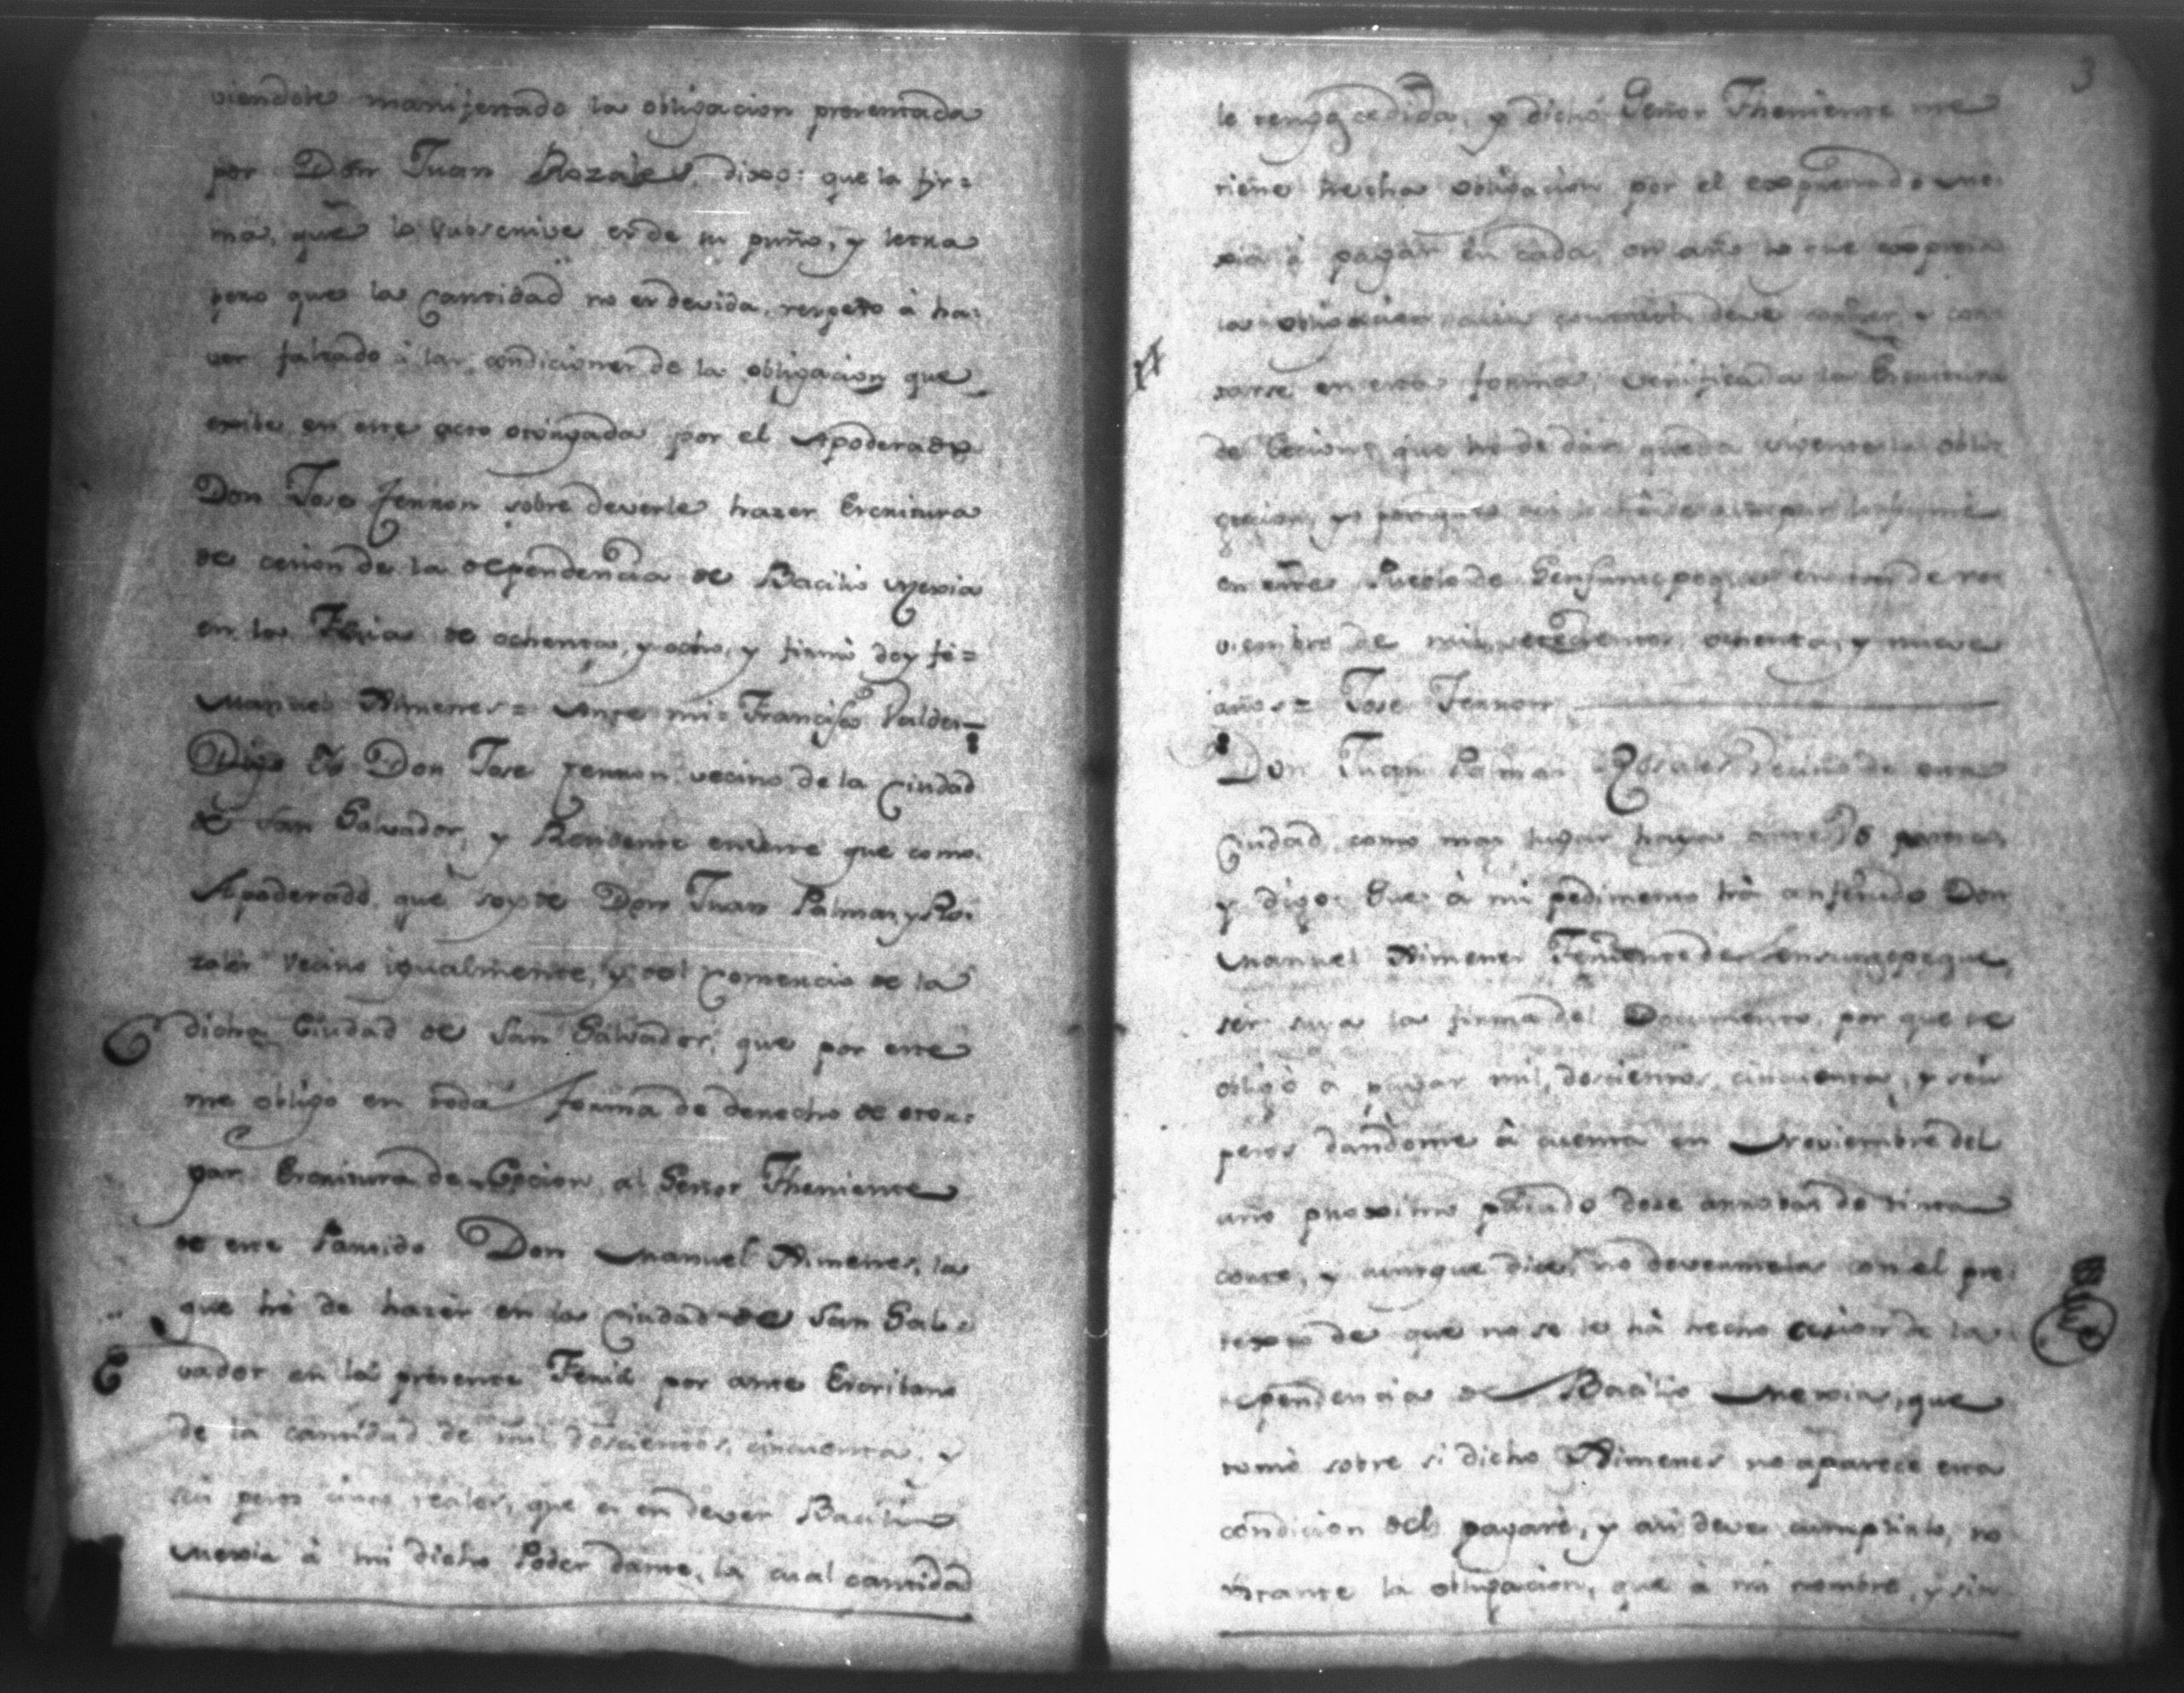 viendole manifestado la obligacion presentada
por Don Juan Rozales, dixo: que la fir=
ma, que la subscrive es de su puño, y letra
pero que la Cantidad no es devida, respeto à ha=
ver faltado à las condiciones de la obligacion que
exibe en este acto otorgada por el Apoderado
Don Jose Ferron sobre deverle hazer Escritura
de cesion de la dependencia de Bacilio Mexia
en la Feria de ochenta, y ocho, y firmò doy fè=
Manuel Ximenes= Ante mi= Francisco Valdes=
Digo Yo Don Jose Ferron vecino de la Ciudad
de San Salvador, y Residente en este que como
Apoderado que soy de Don Juan Palmar y Ro=
zales Vecino igualmente, y del Comercio de la
dicha Ciudad de San Salvador, que por este
me obligo en toda forma de derecho de otor=
gar Escritura de Cecion al Señor Theniente
de este Partido Don Manuel Ximenes, la
que hé de hazer en la Ciudad de San Sal=
vador en la presente Feria por ante Escribano
de la cantidad de mil, doscientos, cincuenta, y
seis pesos cinco reales, que es en dever Bacilio
Mexia à mi dicho Poder dante, la cual cantidad
3
le tengo cedida, y dicho Señor Theniente me
tiene hecha obligacion por el expresado Me=
xia à pagar en cada un año lo que expresa
la obligacion
en esta forma, verificada la Escritura
de Cecion, que hé de dar queda vigente la obli=
gacion, y
en este Pueblo de Sensuntepeque en tres de no=
viembre de mil, setecientos ochenta, y nueve
años= Jose Ferron
Don Juan Palmar y Rosales vecino de esta
Ciudad como mas lugar haya ante Vd paresco
y digo: Que à mi pedimento hà
Manuel Ximenes Teniente de Sensuntepeque,
ser suya la firma del Documento, por que se
obligò à pagar mil, doscientos, cincuenta, y seis
pesos dandome à cuenta en Noviembre del
año proximo pasado doze arrobas de tinta
corte, y aunque dice, no devermelas con el pre=
texto de que no se le hà hecho cesion de la
dependencia de Bacilio Mexia, que
tomò sobre si dicho Ximenes no aparece esta
condicion del pagarè, y asi deve cumplirlo, no
ostante la obligacion, que à mi nombre, y sin